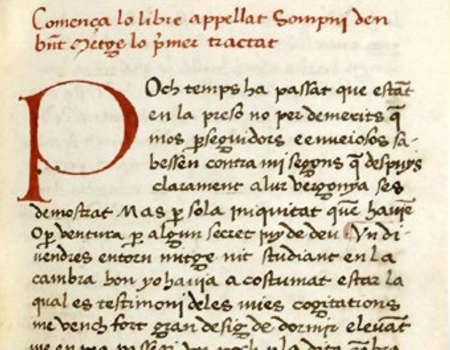 Comença lo libre appellat Sompni den
bñt Metge lo p̃mer tractat
POch temps ha passat que estãt
en la preso no per demerits q̃
mos ꝑseguidors e enueiosos sa-
bessen contra mi segons q̃ despuys
clarament a lur vergonya ses
demostrat Mas ꝑ sola iniquitat que hauiẽ
O ꝑ ventura ꝑ algun secret iuy de deu Vn di-
uendres entorn mitge nit studiant en la
cambra hon yo hauia acostumat estar la
qual es testimoni deles mies cogitations
me vench fort gran desig de dormir e leuãt